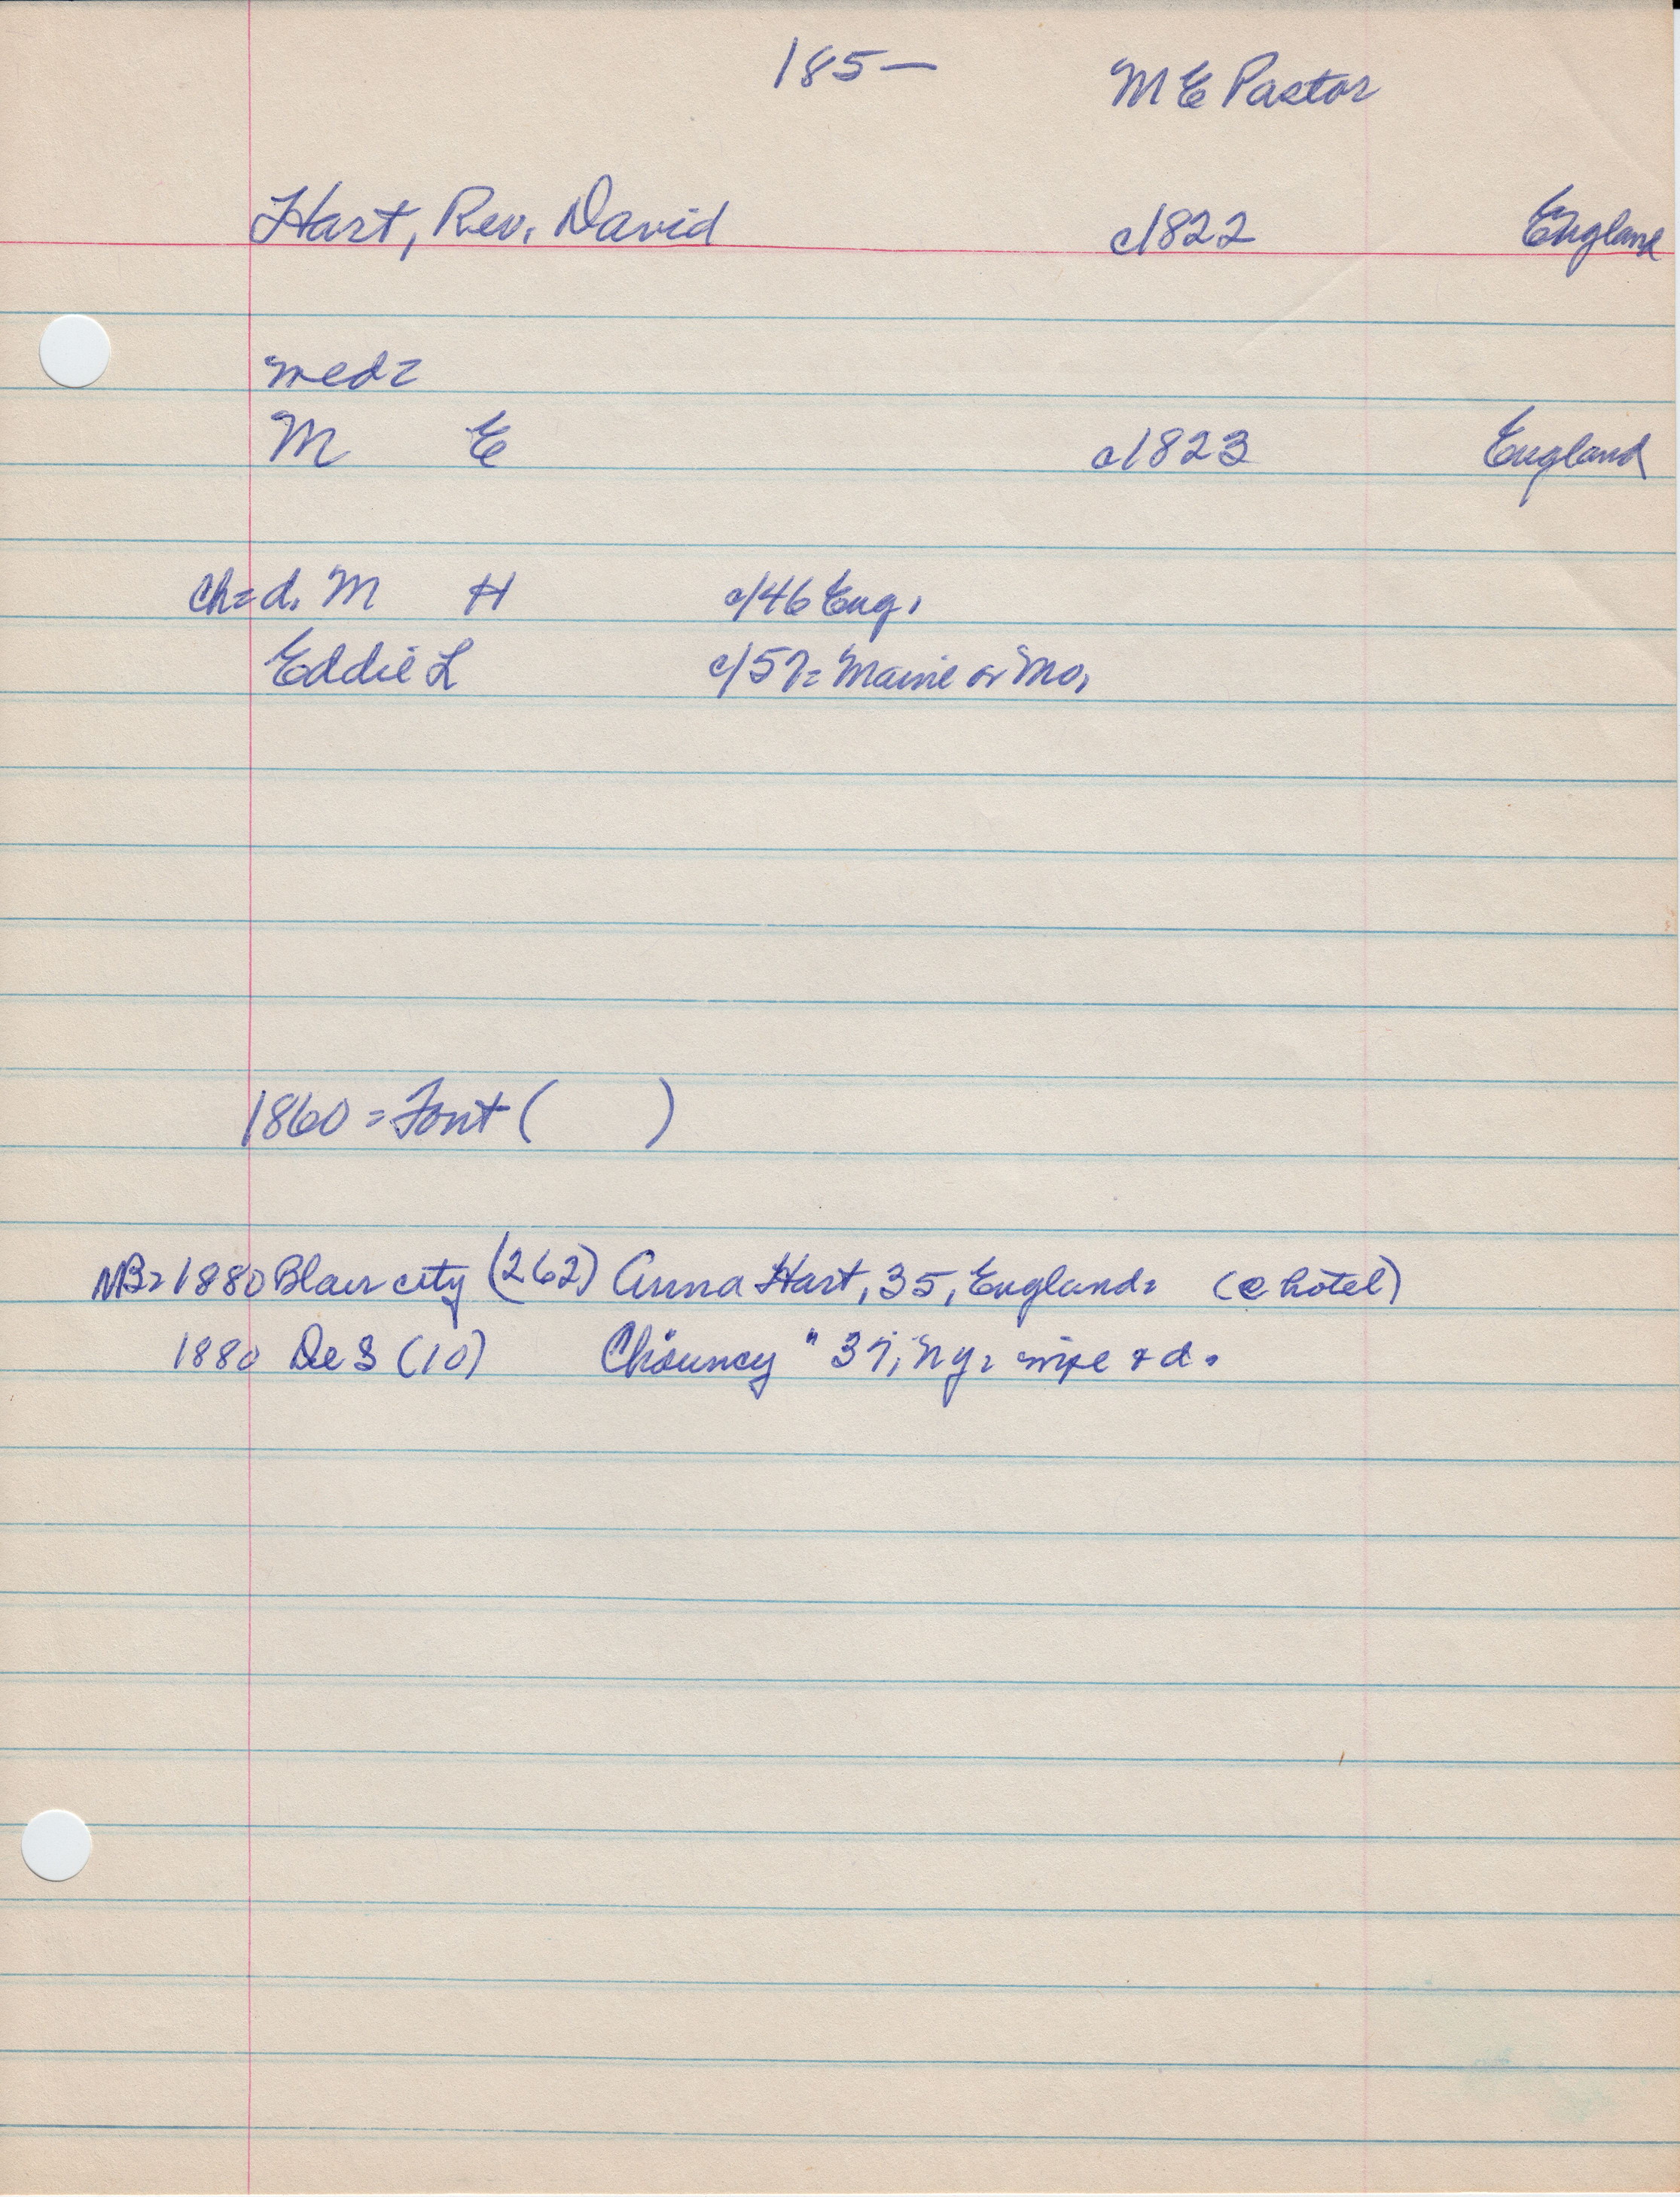 185— M E Pastor
Hart, Rev. David c1822 England
med=
M E c1823 England
Ch= d. M H c/46 Eng.
Eddie L c/57= Maine or Mo.
1860 = Font ( )
NB= 1880 Blair city (262) Anna Hart, 35, England= (@ hotel)
1880 De S (10) Chauncy " 37, NY= wife & d.